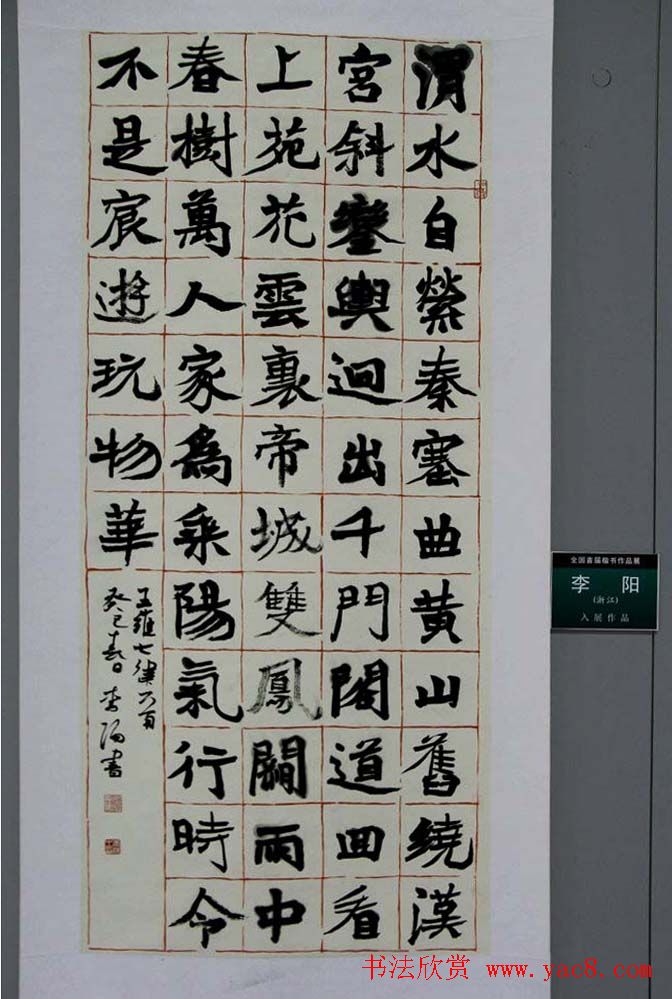 渭水自縈秦塞曲黄山舊繞漢
宮斜鑾輿迥出千門閣道回看
上苑花雲裏帝城雙鳳闕雨中
春樹萬人家為乘陽氣行時令
不是宸遊玩物華
王維七律
癸巳春日李阳書
全国首届楷书作品展
李 阳
(浙江)
入展作品
书法欣赏 www.yac8.com